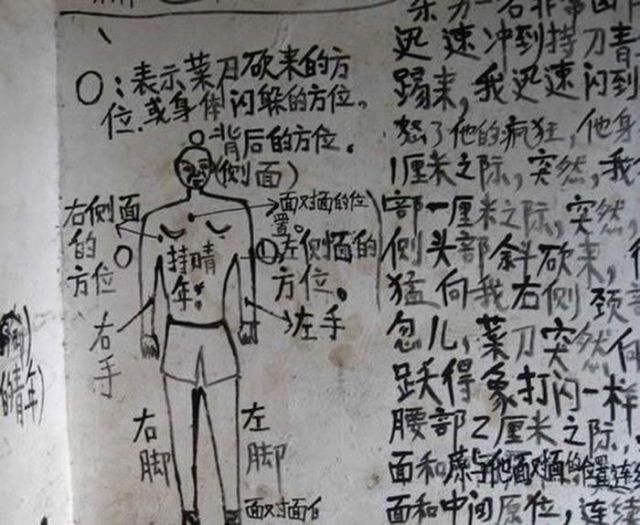 ○:表示菜刀砍来的方
位.或身体闪躲的方位。
背后的方位.
(侧面)
面对面的位
置。
右侧面
的
方位
左侧面的
方位。
持
年
右手
左手
右脚
左脚
面对面
的青年)
迅速冲到持刀青
踢来,我迅速闪到
怒了他的疯狂,他身
1厘米之际,突然,我
部一厘米之际,突然,
侧头部斜砍来,
猛向我右侧颈
忽儿,菜刀突然向
跃得象打闪一样
腰部2厘米之际,
面和 与他面对面的位置连
面和中间原位,连续